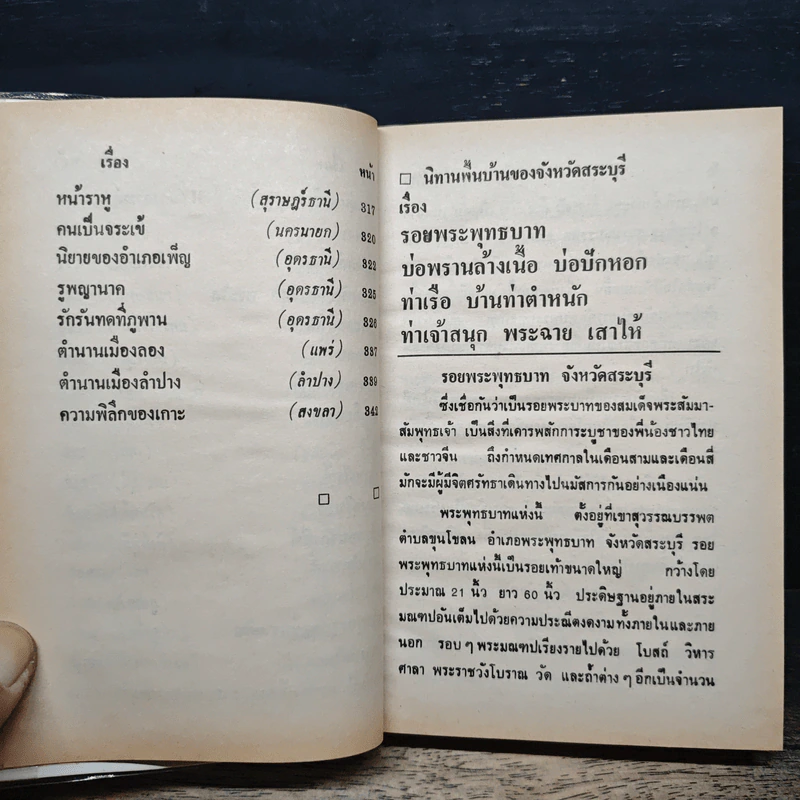 เรื่อง
หน้า
หน้าราหู (สุราษฎร์ธานี) 317
คนเป็นจระเข้ (นครนายก) 320
นิยายของอำเภอเพ็ญ (อุดรธานี) 322
รูพญานาค (อุดรธานี) 325
รักรันทดที่ภูพาน (อุดรธานี) 326
ตำนานเมืองลอง (แพร่) 337
ตำนานเมืองลำปาง (ลำปาง) 339
ความพิลึกของเกาะ (สงขลา) 342
□ นิทานพื้นบ้านของจังหวัดสระบุรี
เรื่อง
รอยพระพุทธบาท
บ่อพรานล้างเนื้อ บ่อปักหอก
ท่าเรือ บ้านท่าตำหนัก
ท่าเจ้าสนุก พระฉาย เสาไห้
รอยพระพุทธบาท จังหวัดสระบุรี
ซึ่งเชื่อกันว่าเป็นรอยพระบาทของสมเด็จพระสัมมา-
สัมพุทธเจ้า เป็นสิ่งที่เคารพสักการะบูชาของพี่น้องชาวไทย
และชาวจีน ถึงกำหนดเทศกาลในเดือนสามและเดือนสี่
มักจะมีผู้มีจิตศรัทธาเดินทางไปนมัสการกันอย่างเนืองแน่น
พระพุทธบาทแห่งนี้ ตั้งอยู่ที่เขาสุวรรณบรรพต
ตำบลขุนโขลน อำเภอพระพุทธบาท จังหวัดสระบุรี รอย
พระพุทธบาทแห่งนี้เป็นรอยเท้าขนาดใหญ่ กว้างโดย
ประมาณ 21 นิ้ว ยาว 60 นิ้ว ประดิษฐานอยู่ภายในสระ
มณฑปอันเต็มไปด้วยความประณีตงดงามทั้งภายในและภาย
นอก รอบ ๆ พระมณฑปเรียงรายไปด้วย โบสถ์ วิหาร
ศาลา พระราชวังโบราณ วัด และถ้ำต่าง ๆ อีกเป็นจำนวน